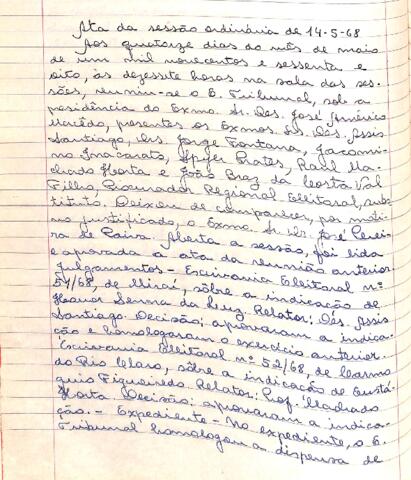 Ata da sessão ordinária de 14-5-68
Aos quatorze dias do mês de maio
de um mil novecentos e sessenta e
oito, às dezessete horas na sala das ses-
sões, reuniu-se o E. Tribunal, sob a
presidência do Exmo. Sr. Des. José Américo
Macêdo, presentes os Exmos. Srs. Des. Assis
Santiago, Drs. Jorge Fontana, Jacomi-
no Inacarato, Prates, Raul Ma-
chado Horta e João Braz da Costa Val
Filho, Procurador Regional Eleitoral, subs-
tituto. Deixou de comparecer, por moti-
vo justificado, o Exmo. Sr. Dr. José Perei-
ra de Paiva. Aberta a sessão, foi lida
e aprovada a ata da reunião anterior.
Julgamentos - Escrivania Eleitoral nº
51/68, de Miraí, sôbre a indicação de
Senna da Cruz. Relator: Des. Assis
Santiago. Decisão: aprovaram a indica-
ção e homologaram o exercício anterior.
Escrivania Eleitoral nº 52/68, de Carmo
do Rio Claro, sôbre a indicação de Eustá-
quio Figueiredo. Relator: Prof. Machado
Horta. Decisão: aprovaram a indica-
ção. - Expediente - No expediente, o E.
Tribunal homologou a dispensa de